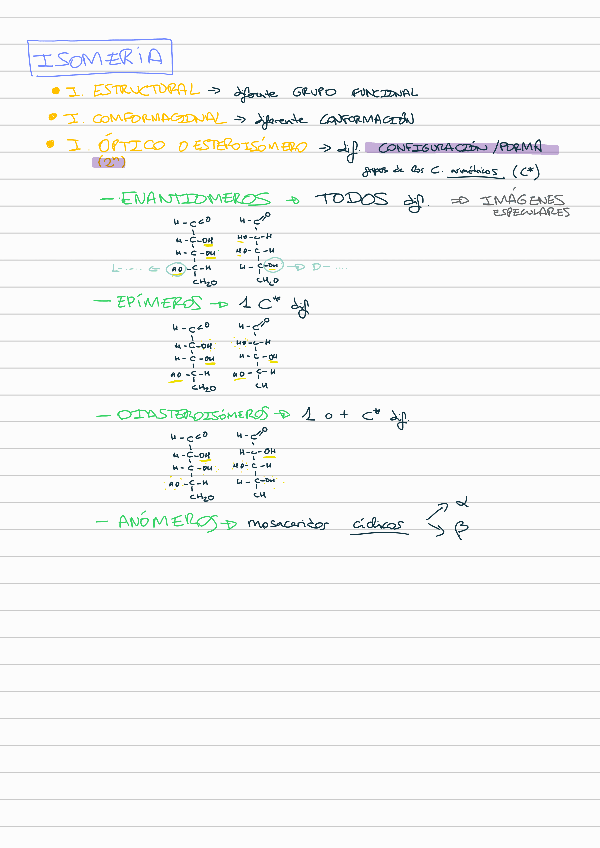 ISOMERÍA
• I. ESTRUCTURAL → diferente GRUPO FUNCIONAL
• I. COMFORMACIONAL → diferente CONFORMACIÓN
• I. ÓPTICO O ESTEROISÓMERO → dif. CONFIGURACIÓN/FORMA
(2ⁿ) grupos de los C. asimétricos (C*)
- ENANTIOMEROS → TODOS dif. ⇒ IMÁGENES
ESPECULARES
H-C=O H-C=O
H-C-OH HO-C-H
H-C-OH HO-C-H
L-.... ← HO-C-H H-C-OH → D-....
CH2O CH2O
- EPÍMEROS → 1 C* dif
H-C=O H-C=O
H-C-OH HO-C-H
H-C-OH H-C-OH
HO-C-H HO-C-H
CH2O CH
- DIASTEROISÓMEROS → 1 o + C* dif.
H-C=O H-C=O
H-C-OH H-C-OH
H-C-OH HO-C-H
HO-C-H H-C-OH
CH2O CH
- ANÓMEROS → mosacaridos cíclicos α
β